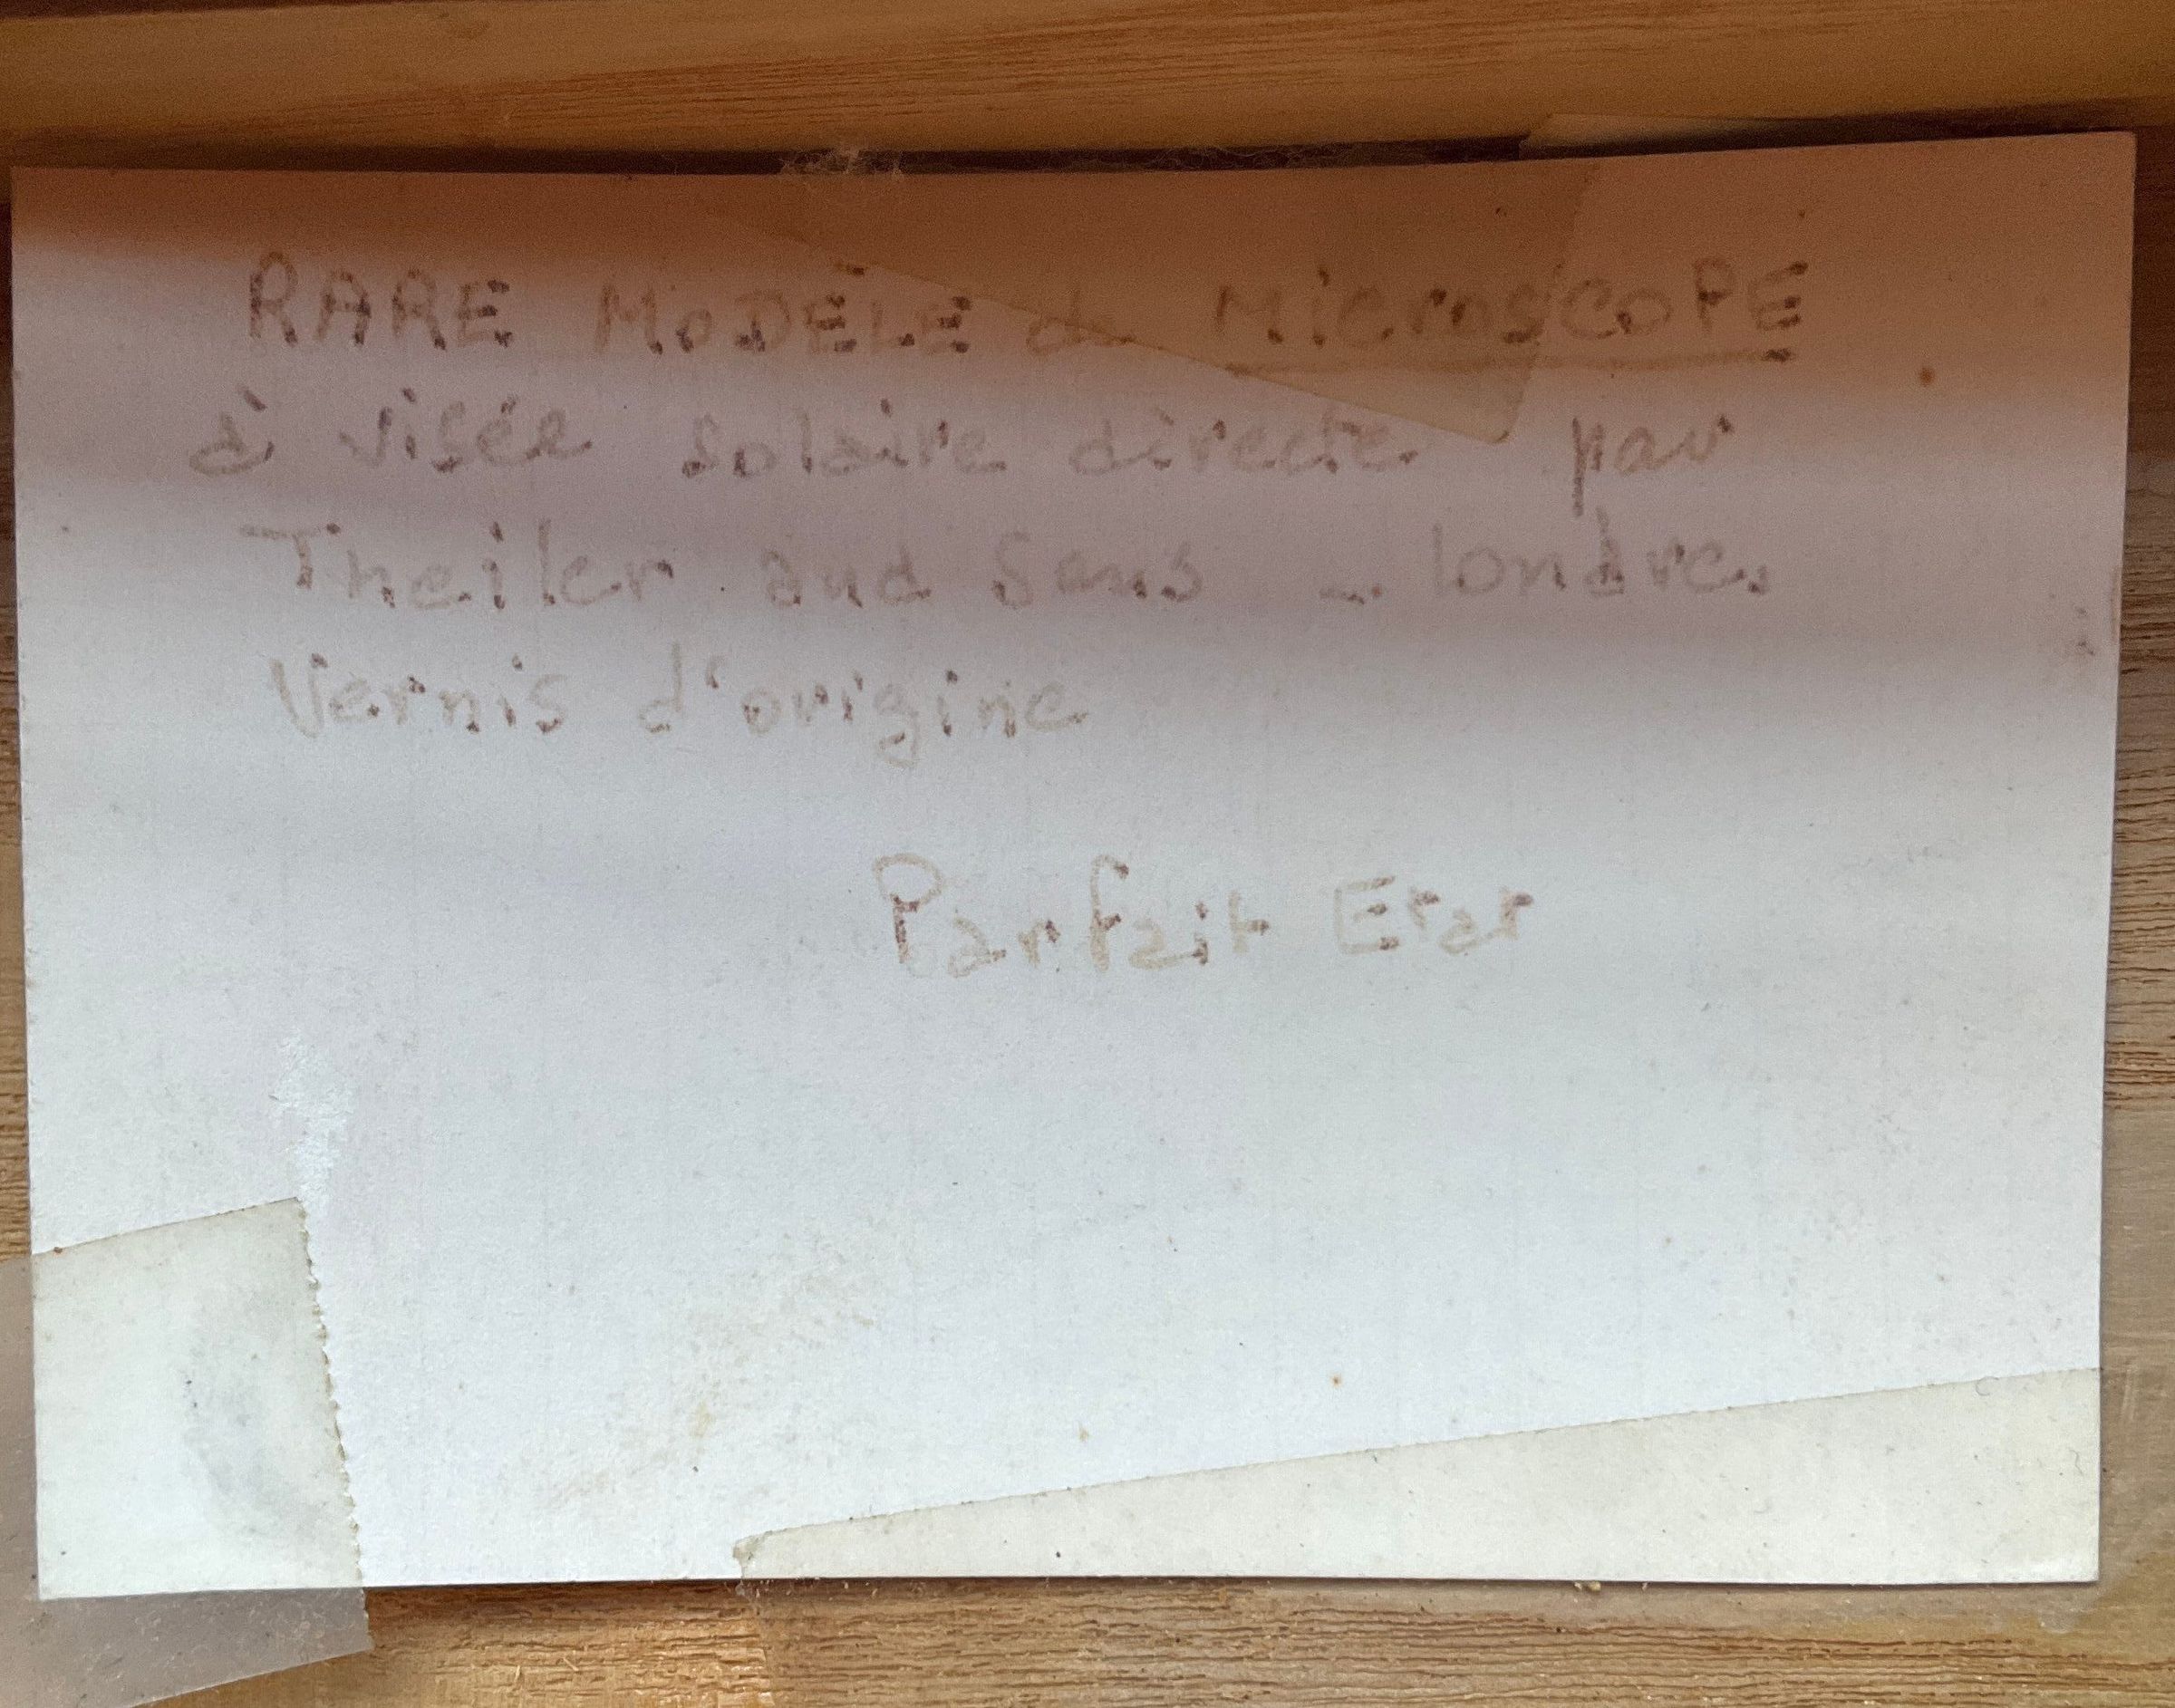 RARE MODÈLE de MicroscoPE
à visée solaire directe par
Theiler and Sons - londres
Vernis d'origine
Parfait Etat